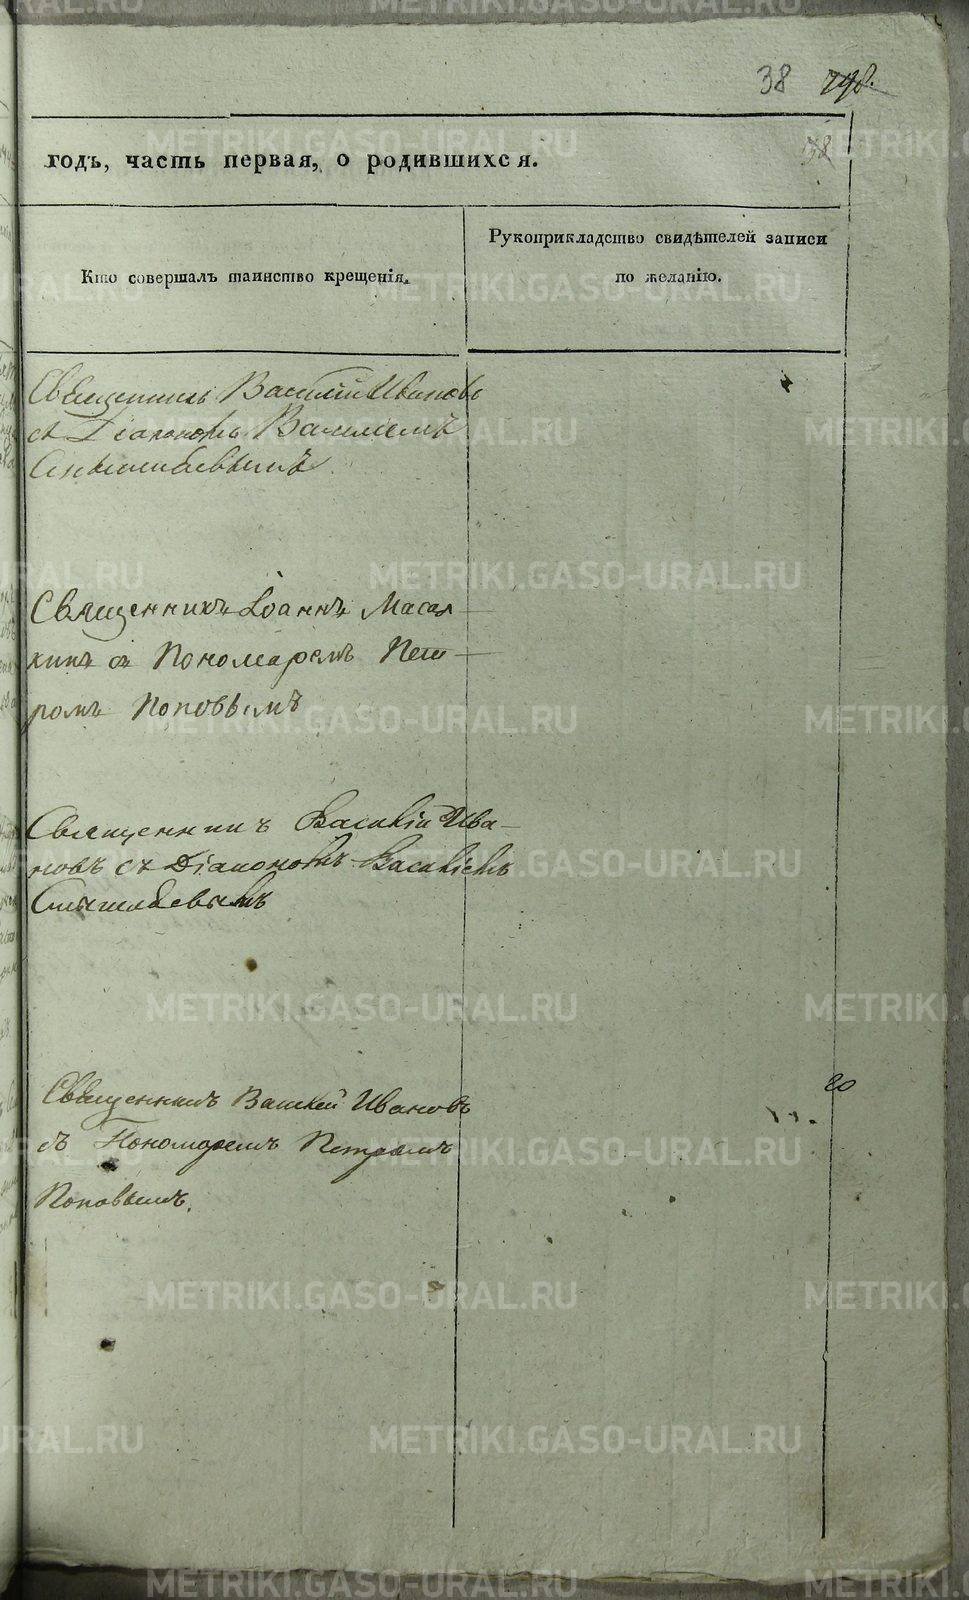 38 798.
годъ, часть первая, о родившихся.
38
Кто совершалъ таинство крещенія.
Рукоприкладство свидѣтелей записи
по желанію.
Священникъ Василій Ивановъ
съ Діакономъ Василіемъ
Священникъ Іоаннъ Масал
кинъ съ Пономаремъ Пет
ромъ Поповымъ
Священникъ Василій Ива
новъ съ Діакономъ Василіемъ
Священникъ Василій Ивановъ
съ Пономаремъ Петромъ
Поповымъ.
20
METRIKI.GASO-URAL.RU